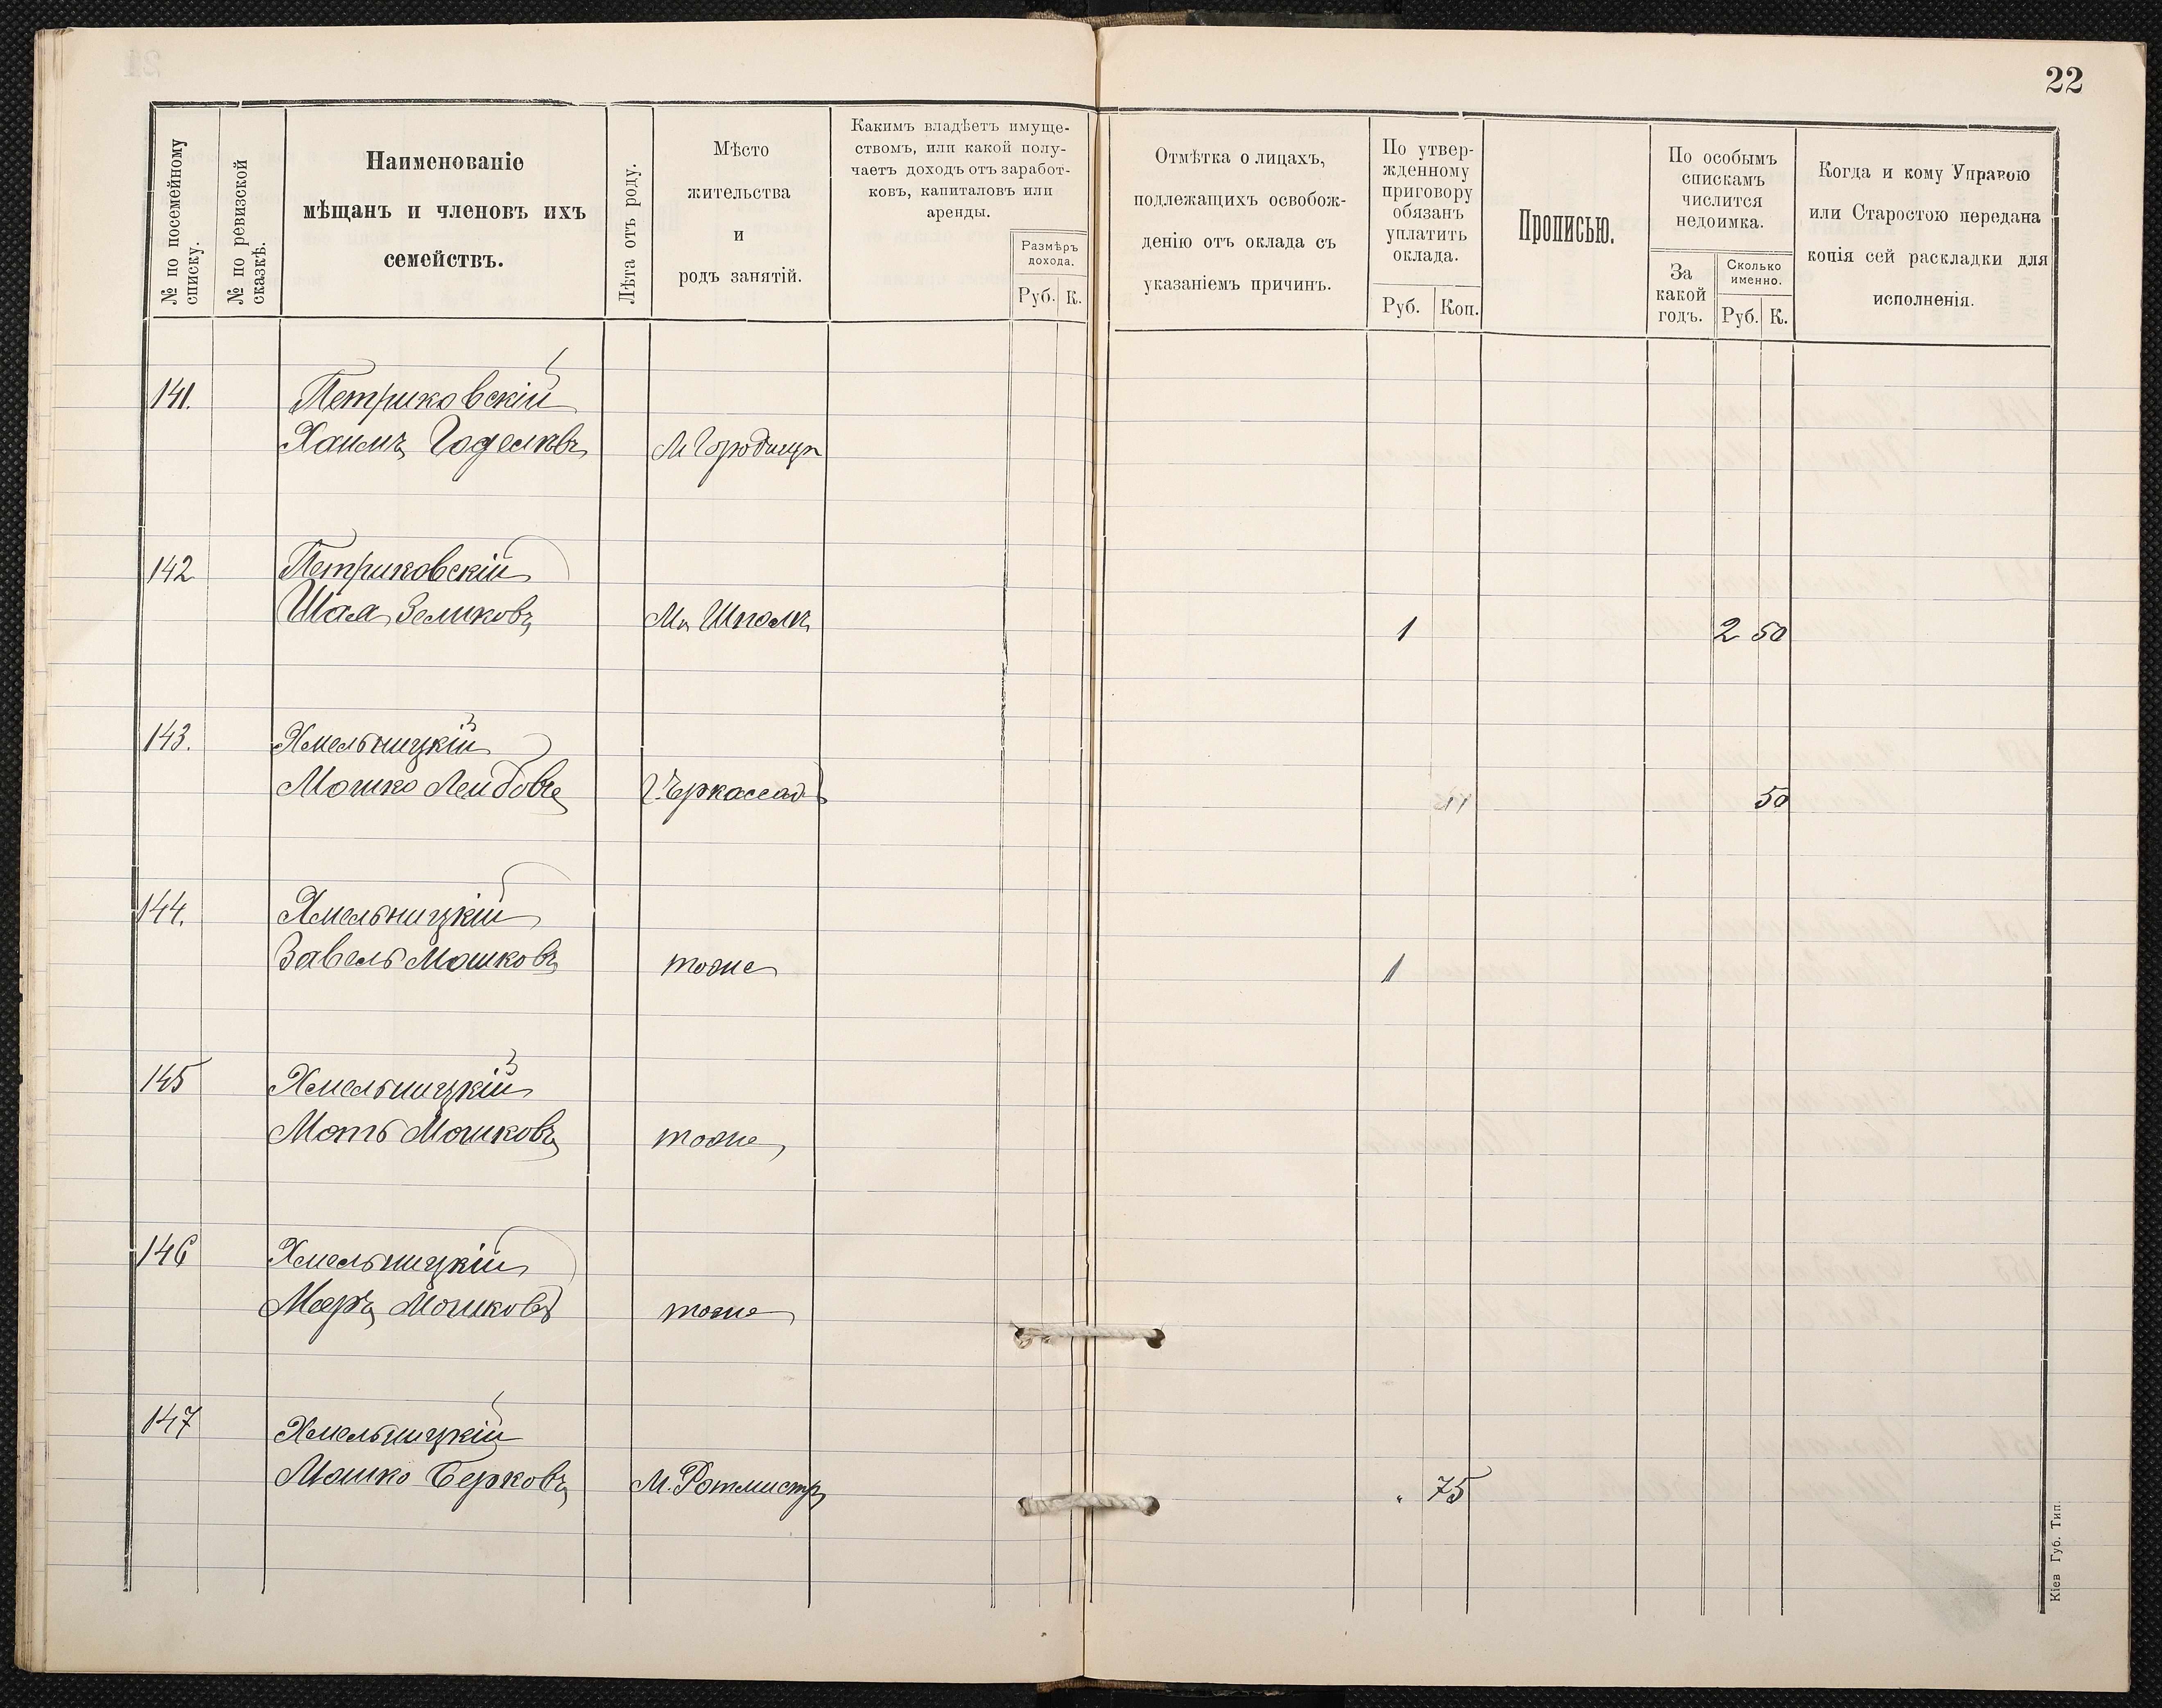 22
№ по посемейному списку.
№ по ревизской сказкѣ.
Наименованіе
мѣщанъ и членовъ ихъ
семействъ.
Лѣта отъ роду.
Мѣсто
жительства
и
родъ занятій.
Какимъ владѣетъ имуще-
ствомъ, или какой полу-
чаетъ доходъ отъ заработ-
ковъ, капиталовъ или
аренды.
Размѣръ
дохода.
Руб. К.
Отмѣтка о лицахъ,
подлежащихъ освобож-
денію отъ оклада съ
указаніемъ причинъ.
По утвер-
жденному
приговору
обязанъ
уплатить
оклада.
Руб. Коп.
Прописью.
По особымъ
спискамъ
числится
недоимка.
За
какой
годъ.
Сколько
именно.
Руб. К.
Когда и кому Управою
или Старостою передана
копія сей раскладки для
исполненія.
141. Петриковскій
Хаимъ М Городище
142 Петриковскій
Шая Зеликовъ М. Шпола 1 2 50
143. Хмельницкій
Мошко Лейбовъ Г. Черкассы 50
144. Хмельницкій
Завель Мошковъ тоже 1
145 Хмельницкій
Моть Мошковъ тоже
146 Хмельницкій
Меръ Мошковъ тоже
147 Хмельницкій
Мошко Берковъ М. Ротмистр " 75
Кіев Губ. Тип.